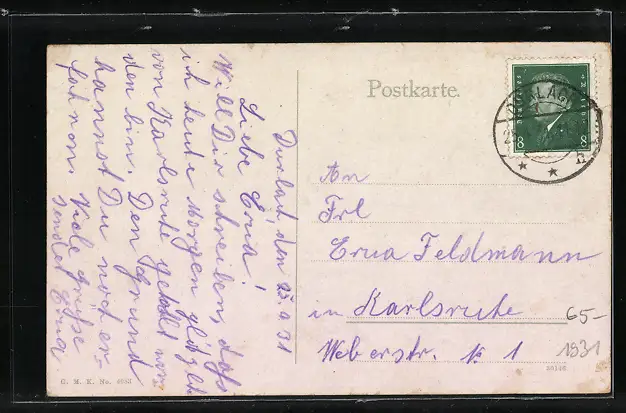 Postkarte.
DURLACH
8 8
Durlach, den 25.9.31
Liebe Erna!
Will Dir schreiben, daß
ich heute morgen
von Karlsruhe
den bin. Den Grund
kannst Du noch er-
fahren. Viele Grüße
sendet Erna
An
Frl
Erna Feldmann
in Karlsruhe
Weberstr. № 1
65-
1931
G. M. K. No.